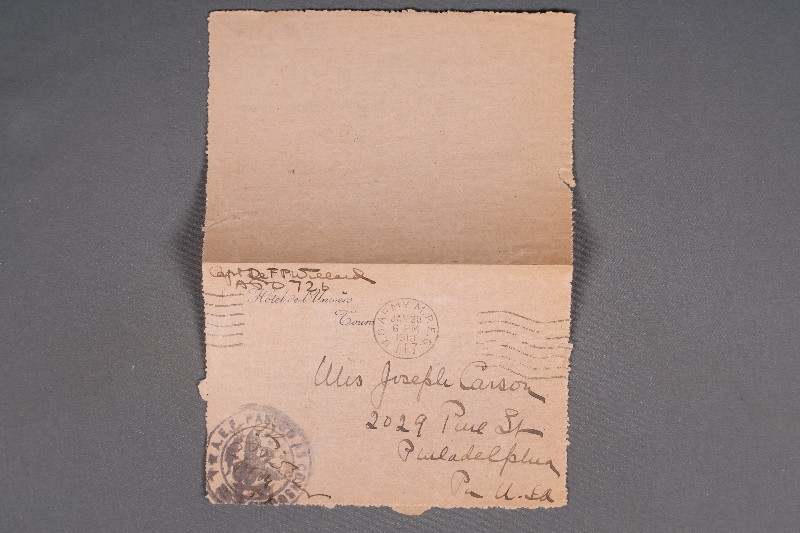 Capt DeF P Willard
APO 726
Hôtel de l'Univers
Tours
U.S. ARMY M.P.E.S.
JAN 20
6 PM
1919
717
Mrs Joseph Carson
2029 Pine St
Philadelphia
Pa U.S.A
A.E.F. PASSED AS CENSORED